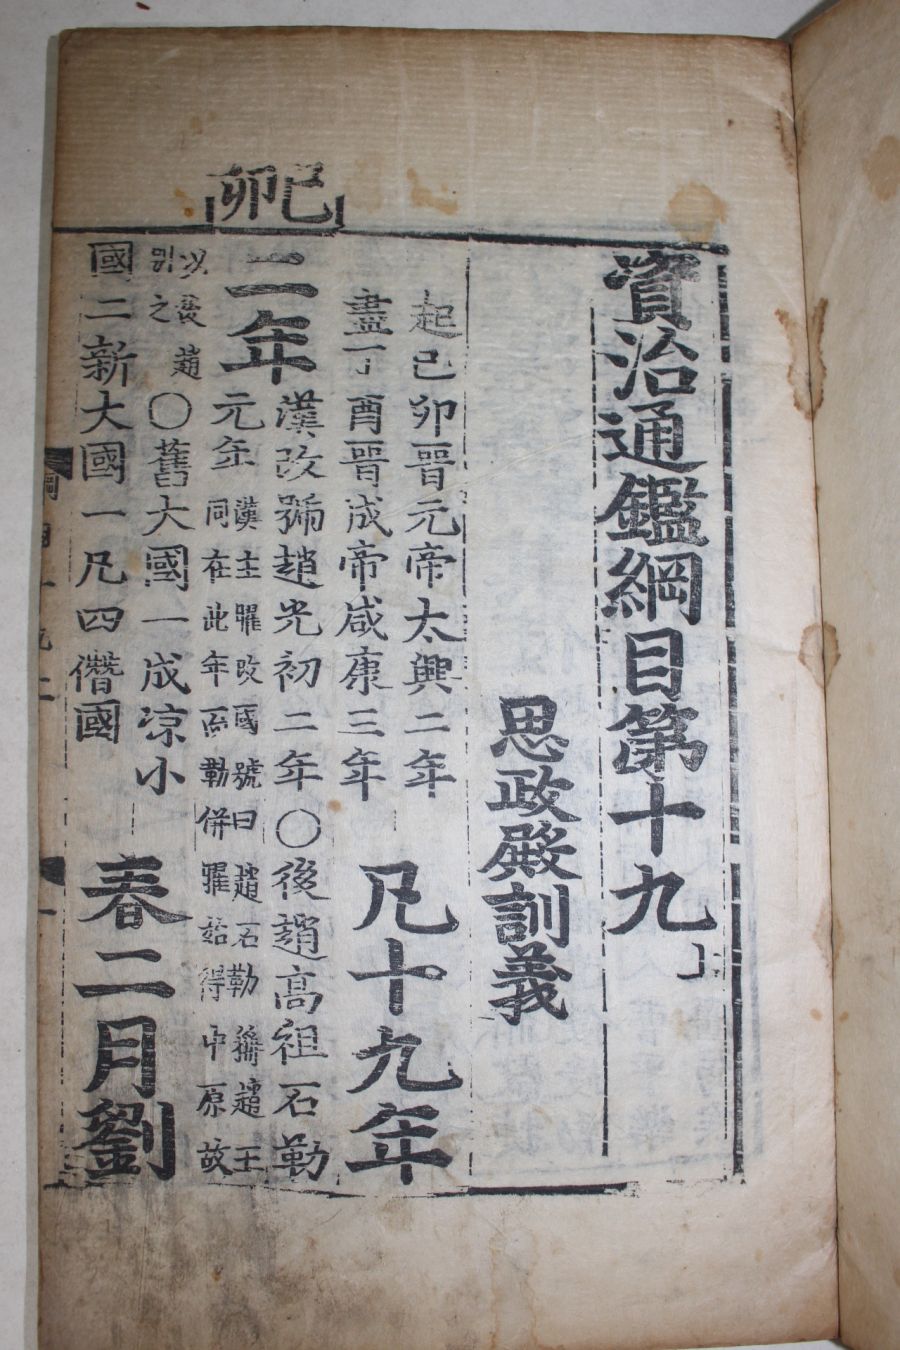 資治通鑑綱目第十九
思政殿訓義
起己卯晉元帝太興二年
盡丁酉晉成帝咸康三年 凡十九年
己卯
二年 漢改號趙光初二年〇後趙高祖石勒
元年 漢主曜改國號曰趙石勒稱趙王
同在此年而勒併曜始得中原故
以後趙
別之
〇舊大國一成涼小
國二新大國一凡四僭國 春二月劉